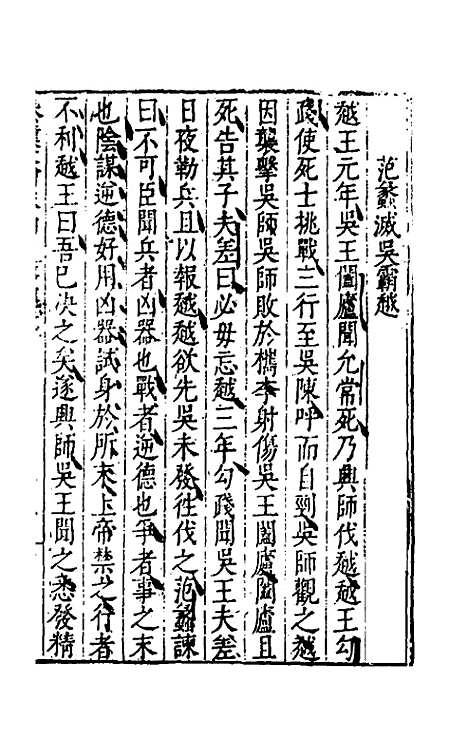 范蠡滅吳霸越
越王元年吳王闔廬聞允常死乃興師伐越越王勾
踐使死士挑戰三行至吳陳呼而自剄吳師觀之越
因襲擊吳師吳師敗於檇李射傷吳王闔廬闔廬且
死告其子夫差曰必毋忘越三年勾踐聞吳王夫差
日夜勒兵且以報越越欲先吳未發往伐之范蠡諫
曰不可臣聞兵者凶器也戰者逆德也爭者事之末
也陰謀逆德好用凶器試身於所末上帝禁之行者
不利越王曰吾已决之矣遂興師吳王聞之悉發精